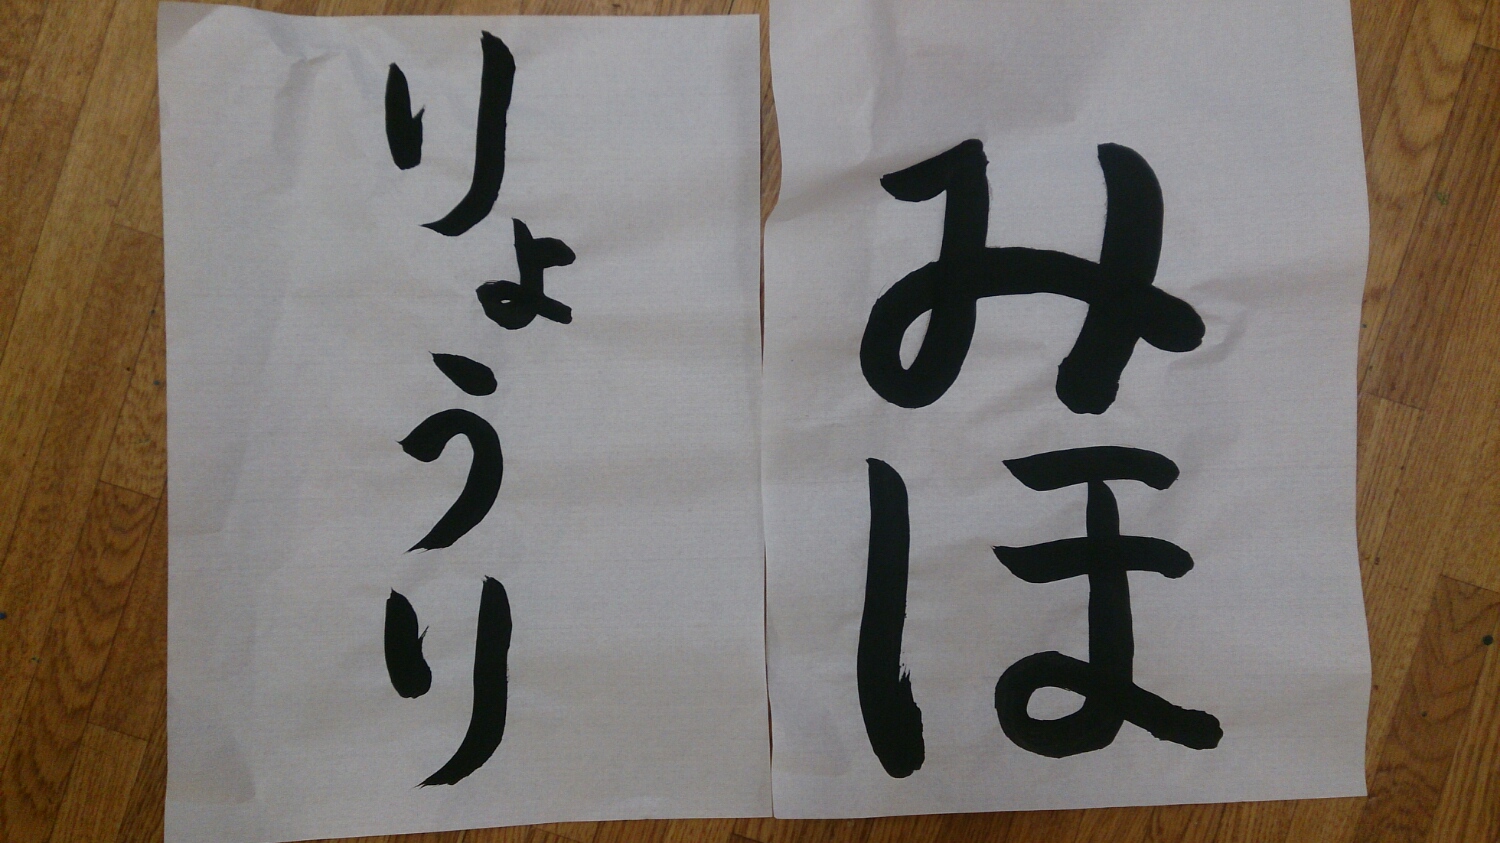 みほ
りょうり